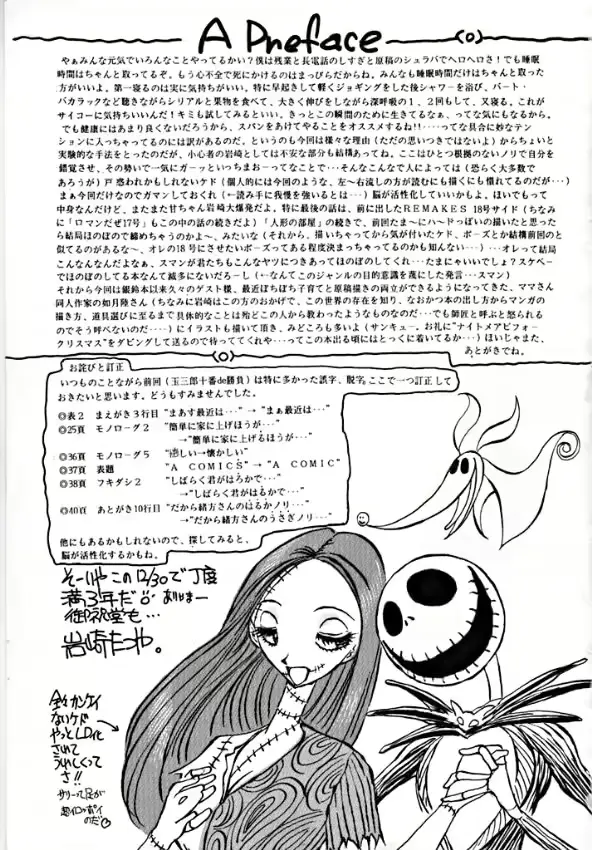 A Preface
やぁみんな元気でいろんなことやってるかい?僕は残業と長電話のしすぎと原稿のシュラバでヘロヘロさ!でも睡眠
時間はちゃんと取ってるぞ。もう心不全で死にかけるのはまっぴらだからね。みんなも睡眠時間だけはちゃんと取った
方がいいよ。第一寝るのは実に気持ちがいい。特に早起きして軽くジョギングをした後シャワーを浴び、バート・
バカラックなど聴きながらシリアルと果物を食べて、大きく伸びをしながら深呼吸の1、2回もして、又寝る。これが
サイコーに気持ちいいんだ!キミも試してみるといい。きっとこの瞬間のために生きてるなぁ、ってな気にもなるから。
でも健康にはあまり良くないだろうから、スパンをあけてやることをオススメするね!!‥‥って な具合に妙なテン
ションに入っちゃってるのには訳があるのだ。というのも今回は様々な理由(ただの思いつきではないよ)からちょいと
実験的な手法をとったのだが、小心者の岩崎としては不安な部分も結構あってね。ここはひとつ根拠のないノリで自分を
錯覚させ、その勢いで一気にガーッといっちまおーってなことで…そんなこんなで人によっては(恐らく大多数で
あろうが)戸惑われるかもしれないケド(個人的には今回のような、左〜右流しの方が読むにも描くにも慣れてるのだが…)
まぁ今回だけなのでガマンしておくれ(←読み手に我慢を強いるとは…)脳が活性化していいかもよ。ほいでもって
中身なんだけど、またまた甘ちゃん岩崎大爆発だよ。特に最後の話は、前に出したREMAKES 18号サイド(ちなみ
に「ロマンだぜ17号」もこの中の話の続きだよ)「人形の部屋」の続きで、前回たま〜にハードっぽいの描いたと思った
ら結局ほのぼので締めちゃうのかよ〜、みたいな(それから、描いちゃってから気が付いたケド、ポーズとか結構前回のと
似てるのがあるな〜、オレの18号にさせたいポーズってある程度決まっちゃってるのかも知んない…)…オレって結局
こんなんなんだよなぁ、スマンが君たちもこんなヤツにつきあってほのぼのしてくれ…たまにゃいいでしょ?スケベー
でほのぼのしてる本なんて滅多にないだろーし(←なんてこのジャンルの目的意識を蔑にした発言…スマン)
それから今回は銀鈴本以来久々のゲスト様、最近ぼちぼち子育てと原稿描きの両立ができるようになってきた、ママさん
同人作家の如月陸さん(ちなみに岩崎はこの方のおかげで、この世界の存在を知り、なおかつ本の出し方からマンガの
描き方、道具選びに至るまで具体的なことは殆どこの人から教わったようなものなのだ…でも師匠と呼ぶと怒られる
のでそう呼べないのだ‥‥)にイラストも描いて頂き、みどころも多いよ(サンキュー。お礼に"ナイトメアビフォー
クリスマス"をダビングして送るので待っててくれや…ってこの本出る頃にはとっくに着いてるか…)ほいじゃまた、
あとがきでね。
お詫びと訂正
いつものことながら前回(玉三郎十番de勝負)は特に多かった誤字、脱字。ここで一つ訂正して
おきたいと思います。どうもすみませんでした。
◎表2 まえがき3行目 "まあす最近は…"→"まぁ最近は…"
◎25頁 モノローグ2 "簡単に家に上げほうが…"
→"簡単に家に上げるほうが…"
◎36頁 モノローグ5
◎37頁 表題 "A COMICS"→"A COMIC"
◎38頁 フキダシ2 "しばらく君がはろかで…"
→"しばらく君がはるかで…"
◎40頁 あとがき10行目 "だから緒方さんのはるかノリ…"
→"だから緒方さんのうさぎノリ…"
他にもあるかもしれないので、探してみると、
脳が活性化するかもね。
そーいやこの12/30で丁度
満3年だ
岩崎たつや。
全々カンケイ
ないケド
やっとLD化
されて
うれしくって
さ!!
サリーって足が